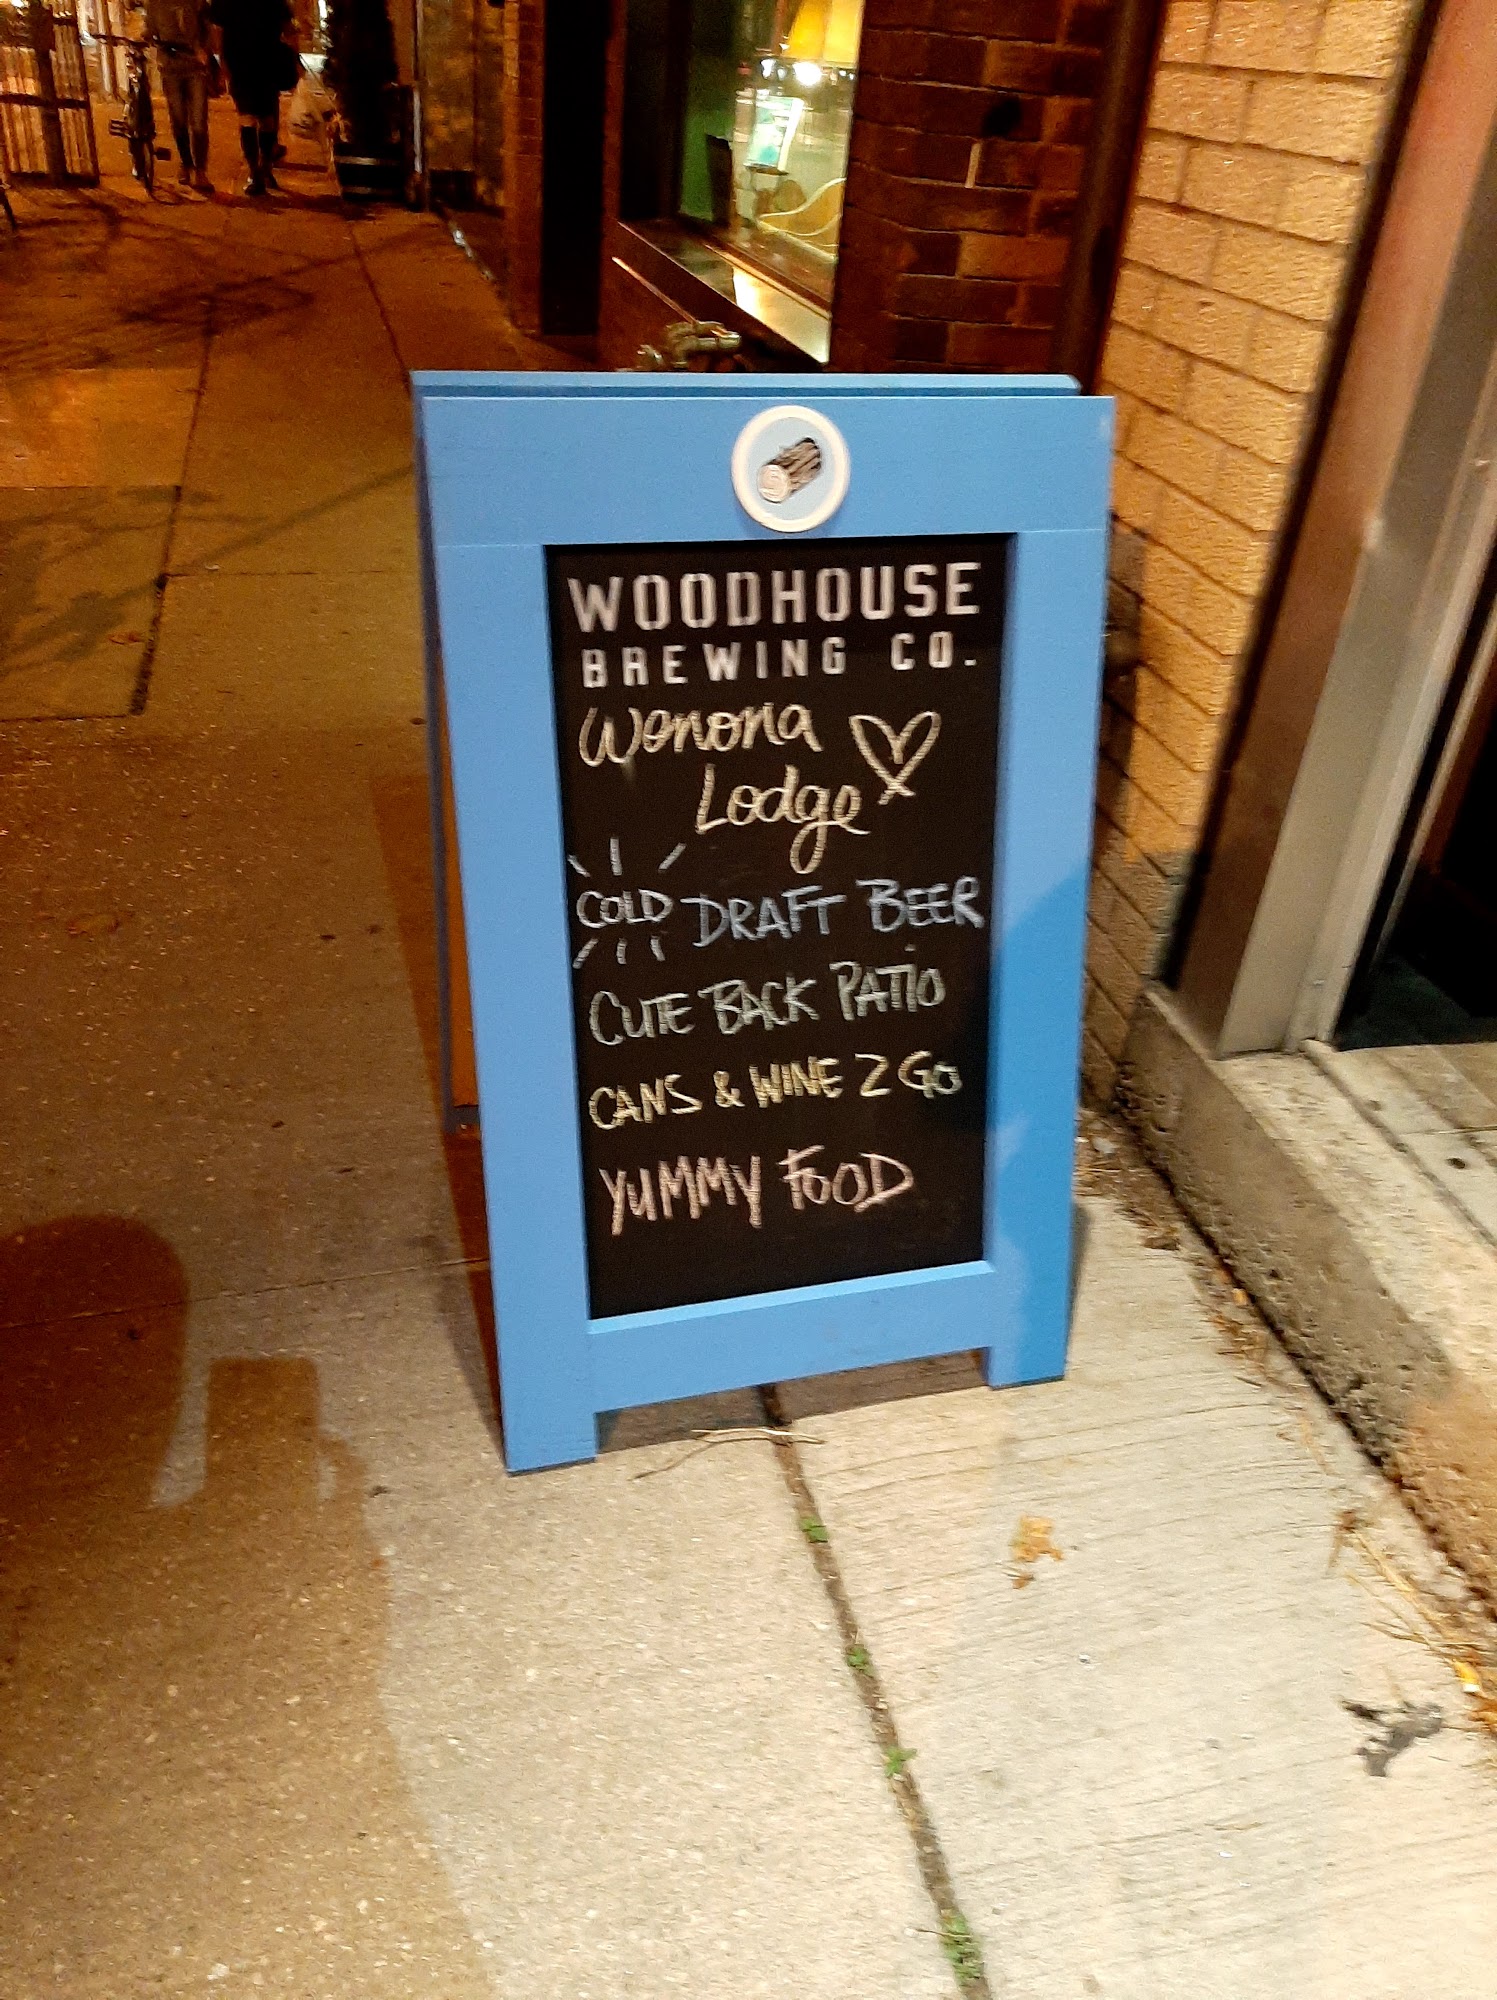 WOODHOUSE
BREWING CO.
Wenona
Lodge
COLD DRAFT BEER
CUTE BACK PATIO
CANS & WINE 2 GO
YUMMY FOOD